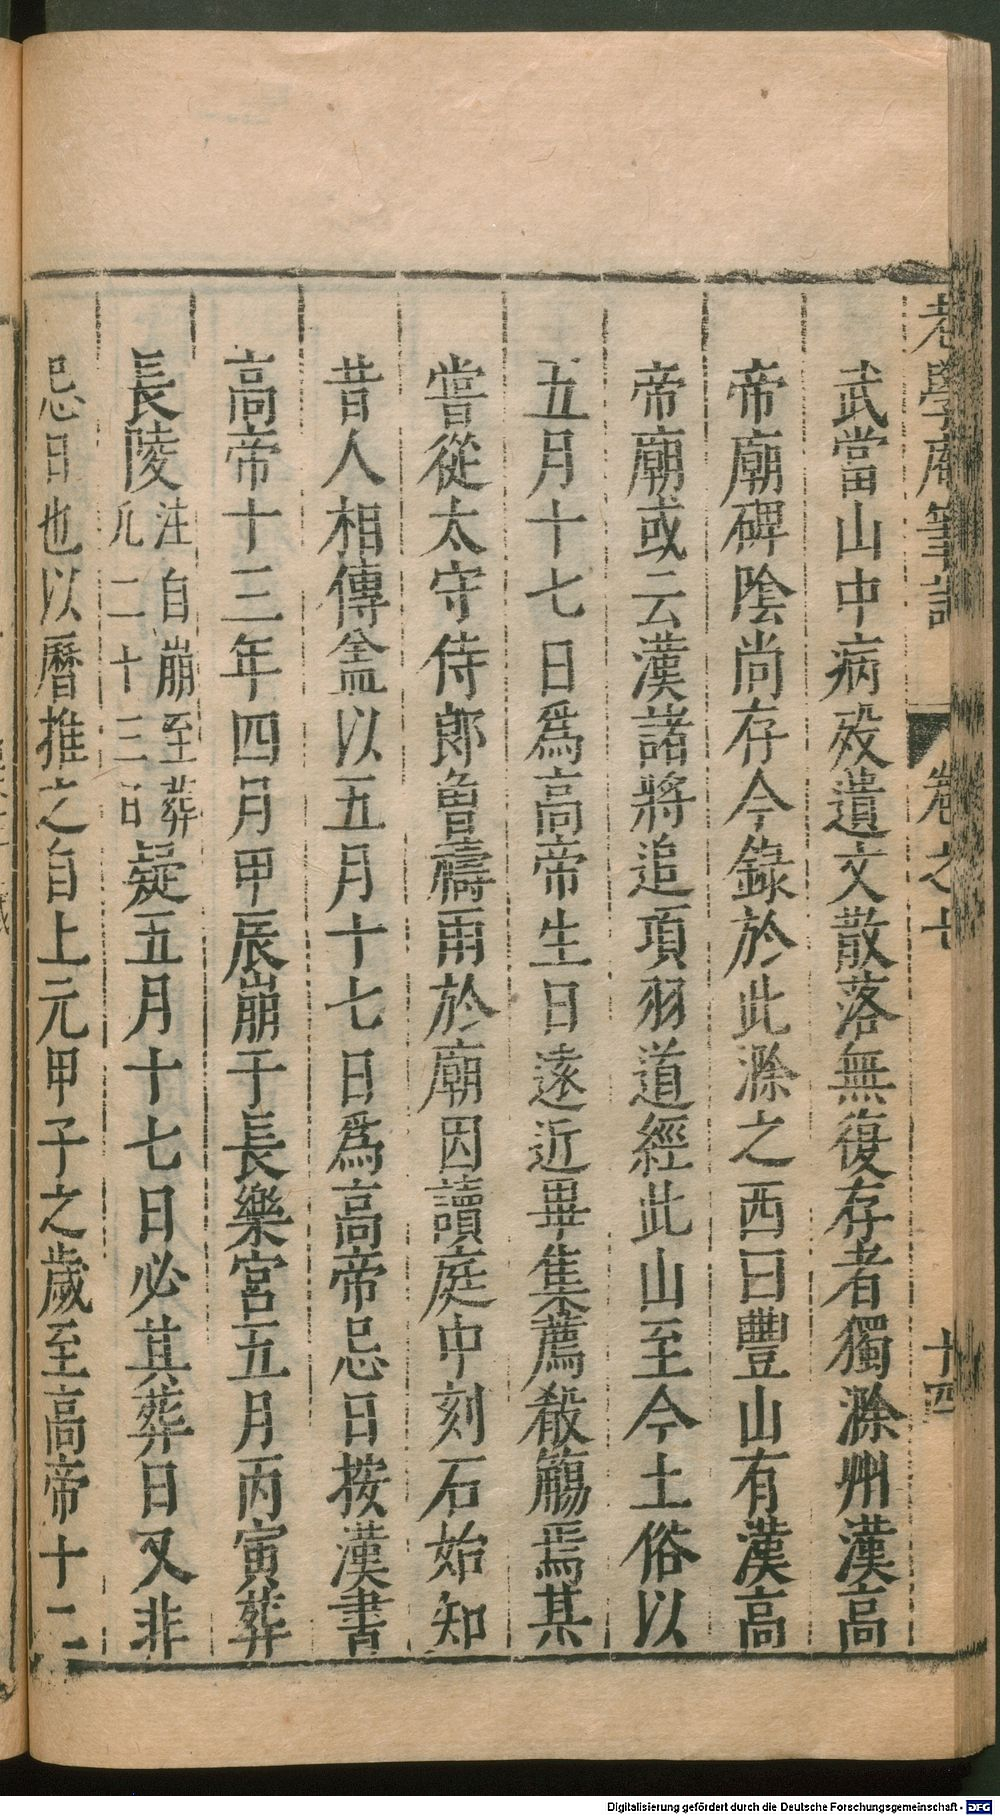 老學庵筆記 卷之七 十四
武當山中病歿遺文散落無復存者獨滁州漢高
帝廟碑陰尚存今錄於此滁之西曰豐山有漢高
帝廟或云漢諸將追項羽道經此山至今土俗以
五月十七日爲高帝生日遠近畢集薦殺觴焉其
嘗從太守侍郎曾禱雨於廟因讀庭中刻石始知
昔人相傳盖以五月十七日爲高帝忌日按漢書
高帝十三年四月甲辰崩于長樂宮五月丙寅葬
長陵注自崩至葬凡二十三日疑五月十七日必其葬日又非
忌日也以曆推之自上元甲子之歲至高帝十二
Digitalisierung gefördert durch die Deutsche Forschungsgemeinschaft - DFG